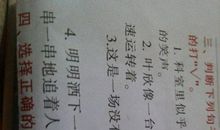 三、判断下列句
的打“√”。
1. 科室里似乎
的笑声。
2. 叶欣像一台
速运转着。
3.这是一场没
4. 明明洒下一
串一串地追着人
四、选择正确的